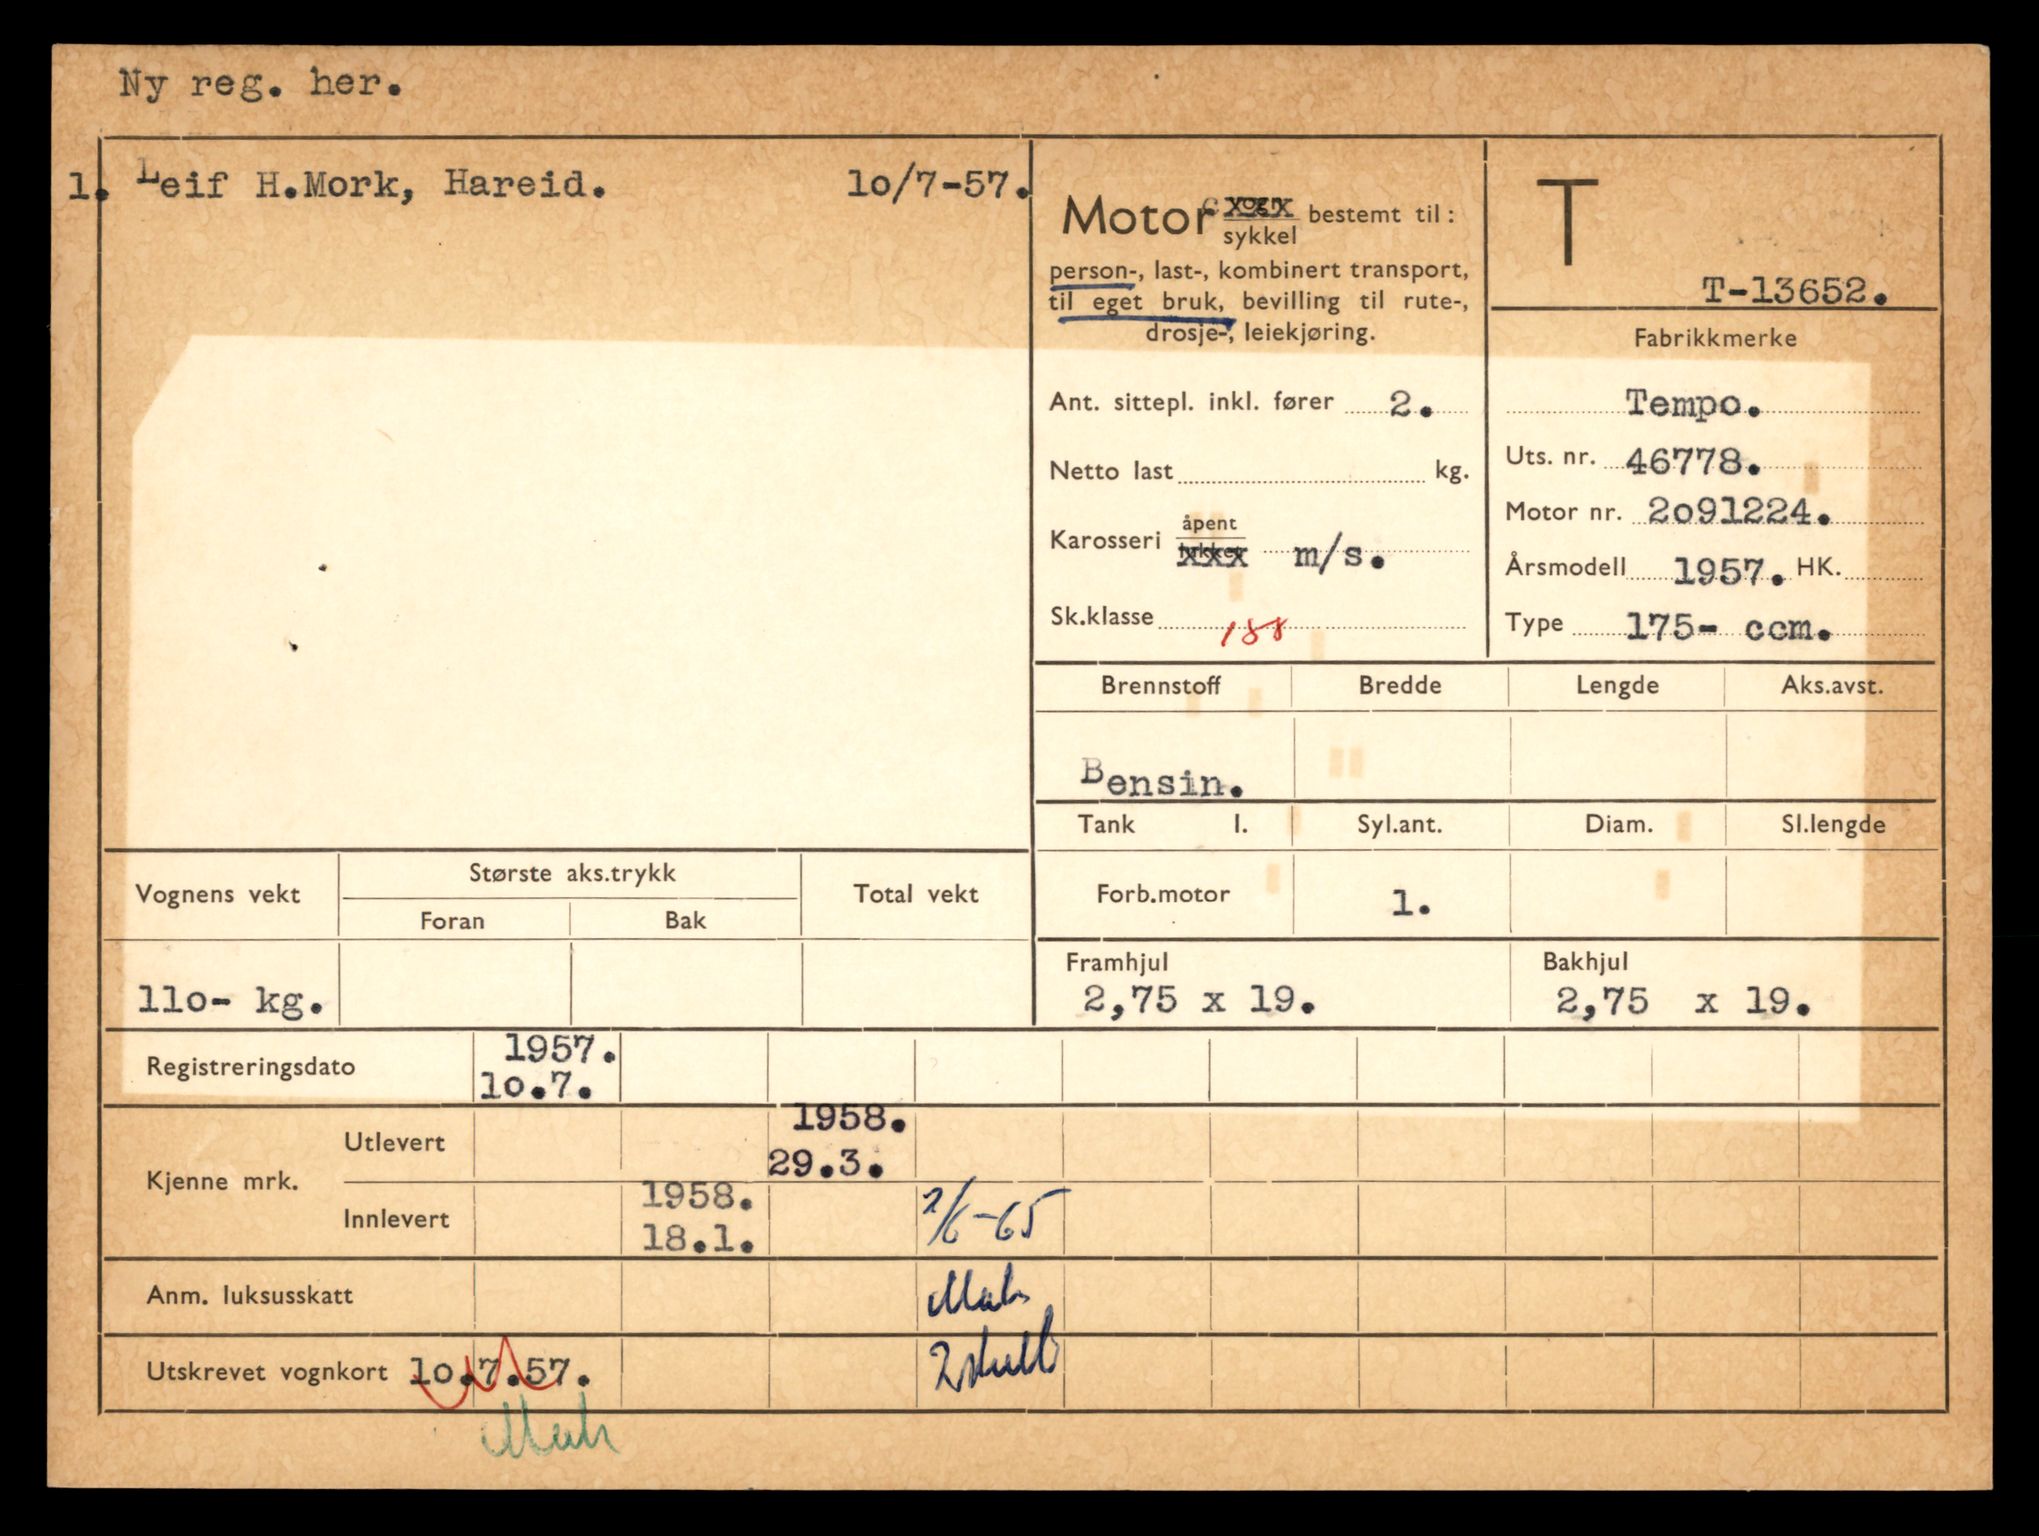 Ny reg. her.
1. Leif H.Mork, Hareid. 10/7-57.
Motor bestemt til:
sykkel
person-, last-, kombinert transport,
til eget bruk, bevilling til rute-,
drosje-, leiekjøring.
T
T-13652.
Ant. sittepl. inkl. fører 2.
Netto last kg.
Karosseri åpent
lukket m/s.
Sk.klasse 188
Fabrikkmerke
Tempo.
Uts. nr. 46778.
Motor nr. 2091224.
Årsmodell 1957. HK.
Type 175- ccm.
Brennstoff Bredde Lengde Aks.avst.
Bensin.
Tank l. Syl.ant. Diam. Sl.lengde
Forb.motor 1.
Framhjul Bakhjul
2,75 x 19. 2,75 x 19.
Vognens vekt Største aks.trykk Total vekt
Foran Bak
110- kg.
Registreringsdato 1957.
10.7.
Kjenne mrk. Utlevert 1958.
29.3.
Innlevert 1958. 2/6-65
18.1.
Anm. luksusskatt
Utskrevet vognkort 10.7.57. 2 skilt